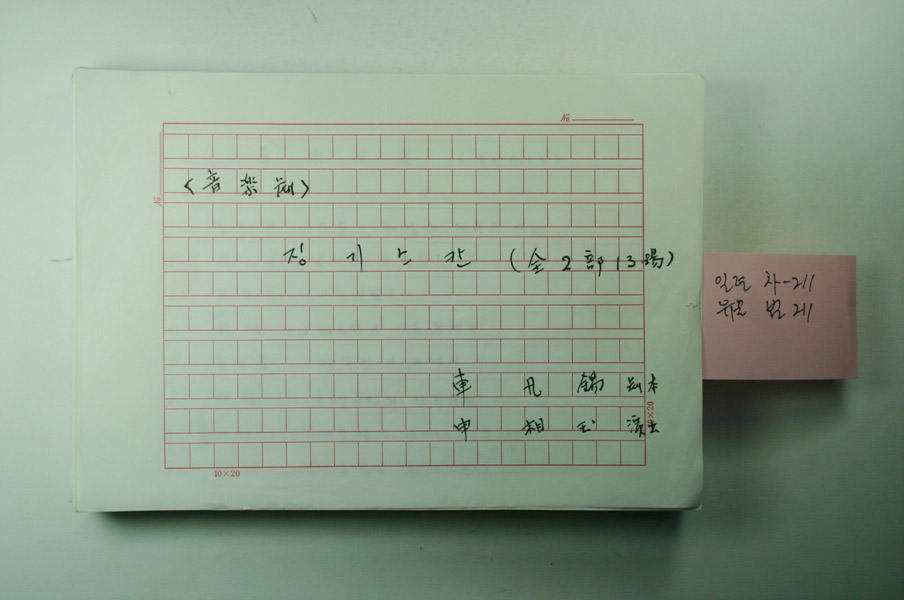 No.
<音樂劇>
No
징 기 스 칸 (全 2 部 13 場)
車 凡 錫 劇本
申 相 玉 演出
10×20
10×20
차-211